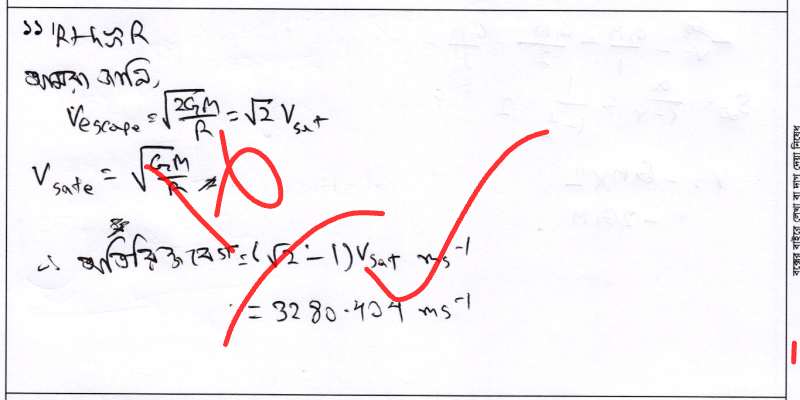 ১১ R+h ≈ R
আমরা জানি,
V_escape = √(2GM/R) = √2 V_sat
V_sate = √(GM/R)
∴ অতিরিক্ত বেগ = (√2 - 1) V_sat ms⁻¹
= 3280.404 ms⁻¹
বক্সের বাইরে লেখা বা দাগ দেয়া নিষেধ